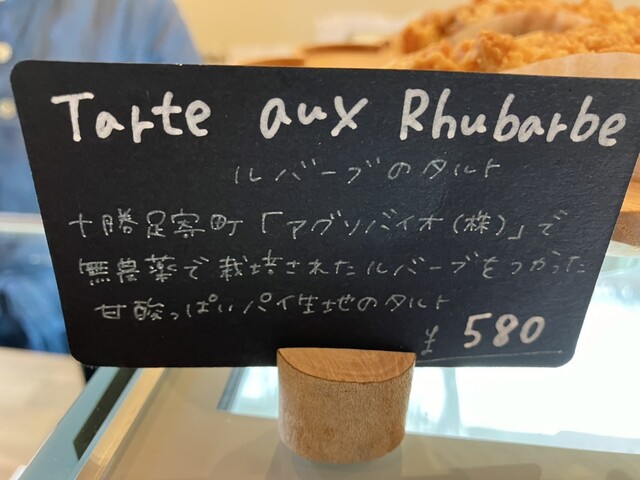 Tarte aux Rhubarbe
ルバーブのタルト
十勝足寄町「アグリバイオ(株)」で
無農薬で栽培されたルバーブをつかった
甘酸っぱいパイ生地のタルト
¥ 580